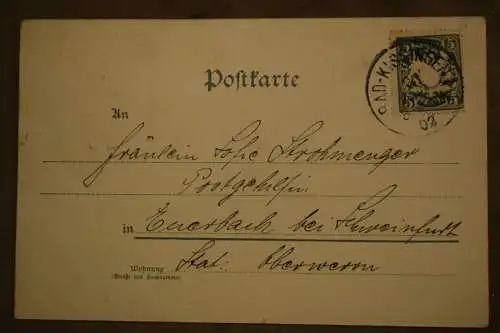 BAD-KISSINGEN
02
5
5
Postkarte
An
Fräulein Sofie Strohmenger
Postgehilfin
in Euerbach bei Schweinfurt
Wohnung Stat: Oberwerrn
(Straße und Hausnummer)